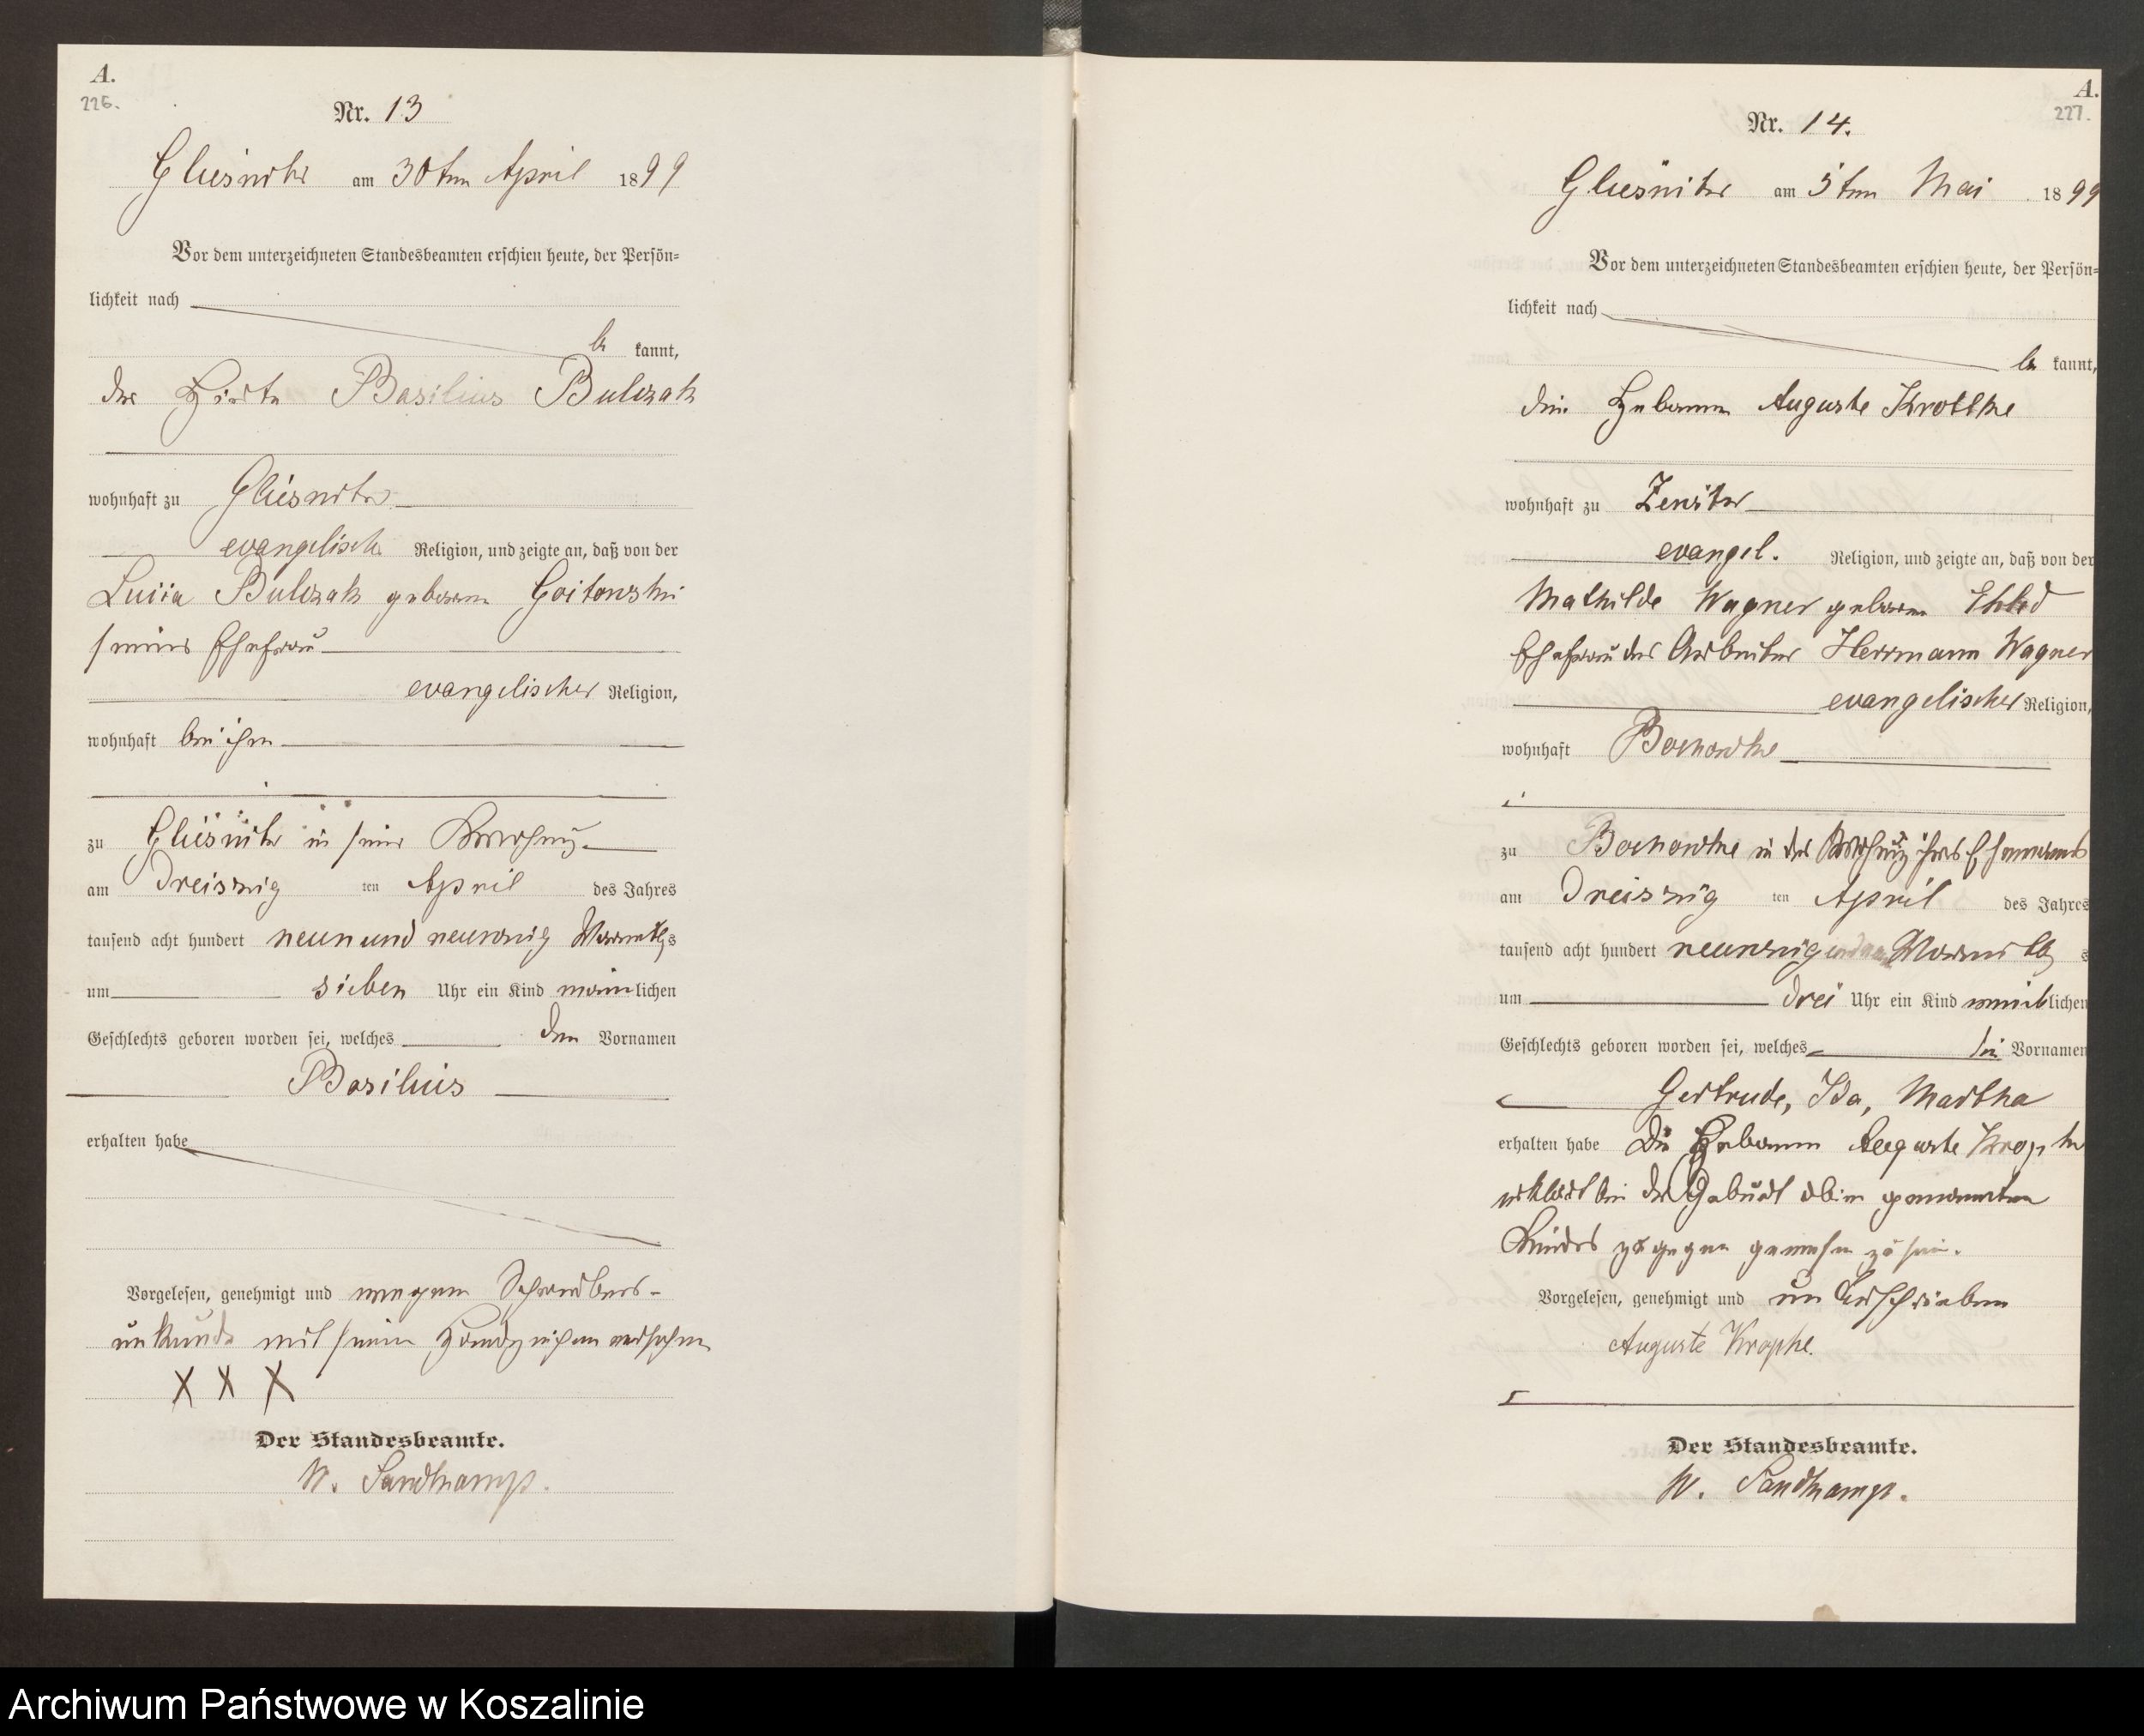 A.
226.
Nr. 13
Gliesnitz am 30ten April 1899
Vor dem unterzeichneten Standesbeamten erschien heute, der Persön-
lichkeit nach
be kannt,
der Hirte Basilius Bulczak
wohnhaft zu Gliesnitz
evangelisch Religion, und zeigte an, daß von der
Luiia Bulczak geboren
seiner Ehefrau
evangelischer Religion,
wohnhaft bei ihm
zu Gliesnitz in seiner Wohnung
am Dreiszig ten April des Jahres
tausend acht hundert neun und neunzig Vormittags
um sieben Uhr ein Kind männlichen
Geschlechts geboren worden sei, welches den Vornamen
Basilius
erhalten habe
Vorgelesen, genehmigt und wegen Schreibens-
unkunde mit seinen Handzeichen versehen
X X X
Der Standesbeamte.
W. Sandkamp.
A.
227.
Nr. 14.
Gliesnitz am 5ten Mai 1899
Vor dem unterzeichneten Standesbeamten erschien heute, der Persön-
lichkeit nach
be kannt,
die Hebamme Auguste
wohnhaft zu
evangel. Religion, und zeigte an, daß von der
Mathilde Wagner geboren
Ehefrau des Arbeiter Herrmann Wagner
evangelischer Religion,
wohnhaft Bochowke
zu Bochowke in der Wohnung ihres Ehemanns
am Dreiszig ten April des Jahres
tausend acht hundert neunzig Vormittag s
um drei Uhr ein Kind weiblichen
Geschlechts geboren worden sei, welches die Vornamen
Gertrude, Ida, Martha
erhalten habe Die Hebamme Auguste
erklärt bei der Geburt oben genannten
Kindes zugegen gewesen zu sein.
Vorgelesen, genehmigt und unterschrieben
Auguste Krophe.
Der Standesbeamte.
W. Sandkamp.
Archiwum Państwowe w Koszalinie